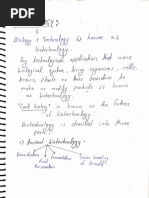 Biology + Technology is known as
biotechnology.
by technological application that uses
biological system, living organisms, cells,
plants or their derivatives to
make or modify products is known
as biotechnology.
is known as the father
of biotechnology.
Biotechnology is classified into three
parts.
1) Ancient biotechnology -
Domestication
Fermentation
Food
Preservation